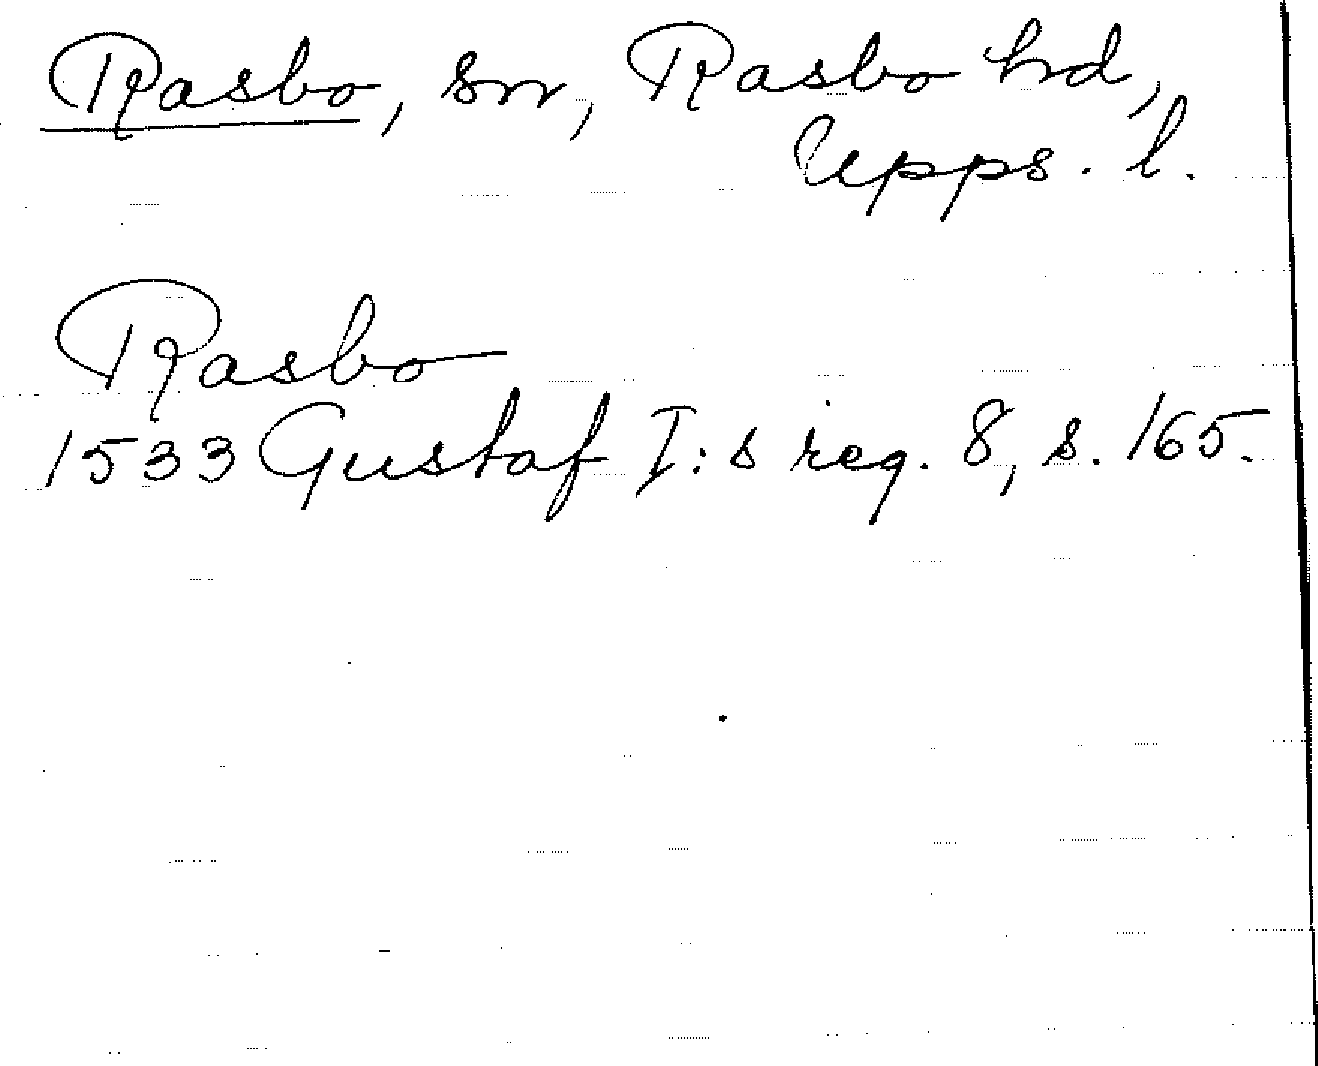 Rasbo, sn, Rasbo hd,
Upps. l.
Rasbo
1533 Gustaf I:s reg. 8, s. 165.